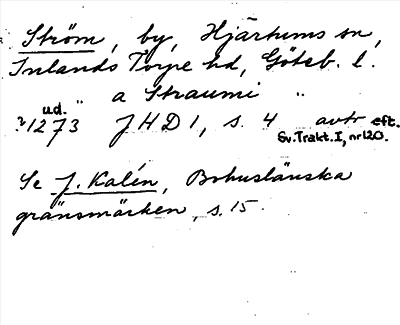 Ström, by, Hjärtums sn,
Inlands Torpe hd, Göteb. l.
" a Straumi "
u.d.
?1273 JHD 1, s. 4 avtr eft.
Sv. Trakt. I, nr 120.
Se J. Kalén, Bohuslänska
gränsmärken, s. 15.